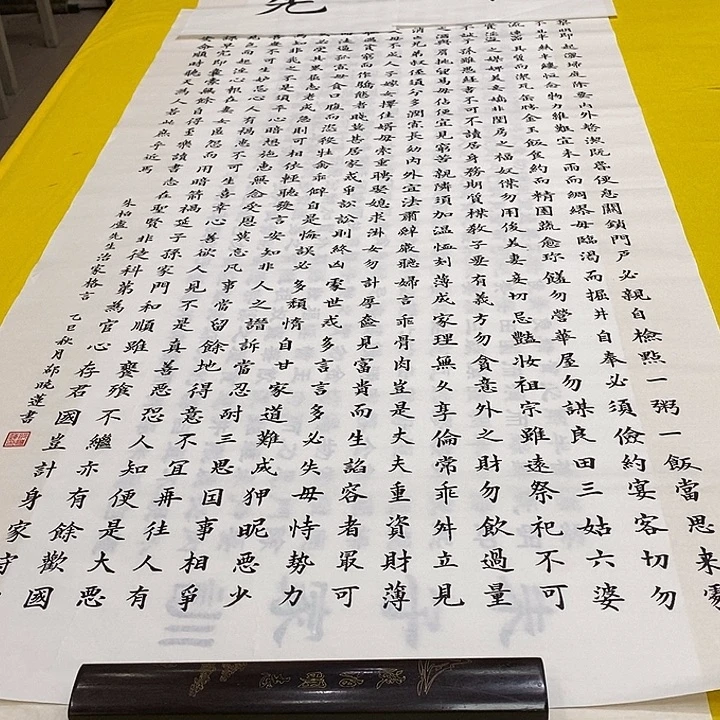 先
黎明即起灑掃庭除要內外整潔既昏便息關鎖門戶必親自檢點一粥一飯當思來處
不易半絲半縷恆念物力維艱宜未雨而綢繆毋臨渴而掘井自奉必須儉約宴客切勿
流連器具質而潔瓦缶勝金玉飲食約而精園蔬愈珍饈勿營華屋勿謀良田三姑六婆
實淫盜之媒婢美妾嬌非閨房之福奴僕勿用俊美妻妾切忌艷妝祖宗雖遠祭祀不可
不誠子孫雖愚經書不可不讀居身務期質樸教子要有義方勿貪意外之財勿飲過量
之酒與肩挑貿易毋佔便宜見窮苦親鄰須加溫恤刻薄成家理無久享倫常乖舛立見
消亡兄弟叔侄須分多潤寡長幼內外宜法肅辭嚴聽婦言乖骨肉豈是丈夫重資財薄
父母不成人子嫁女擇佳婿毋索重聘娶媳求淑女勿計厚奩見富貴而生諂容者最可
恥遇貧窮而作驕態者賤莫甚居家戒爭訟訟則終凶處世戒多言言多必失毋恃勢力
而凌逼孤寡毋貪口腹而恣殺牲禽乖僻自是悔誤必多頹惰自甘家道難成狎昵惡少
久必受其累屈志老成急則可相依輕聽發言安知非人之譖訴當忍耐三思因事相爭
焉知非我之不是須平心暗想施惠無念受恩莫忘凡事當留餘地得意不宜再往人有
喜慶不可生妒忌心人有禍患不可生喜幸心善欲人見不是真善惡恐人知便是大惡
見色而起淫心報在妻女匿怨而用暗箭禍延子孫家門和順雖饔飧不繼亦有餘歡國
課早完即囊橐無餘自得至樂讀書志在聖賢非徒科第為官心存君國豈計身家守
分安命順時聽天為人若此庶乎近焉
朱柏廬先生治家格言 乙巳秋月邵曉蓮書